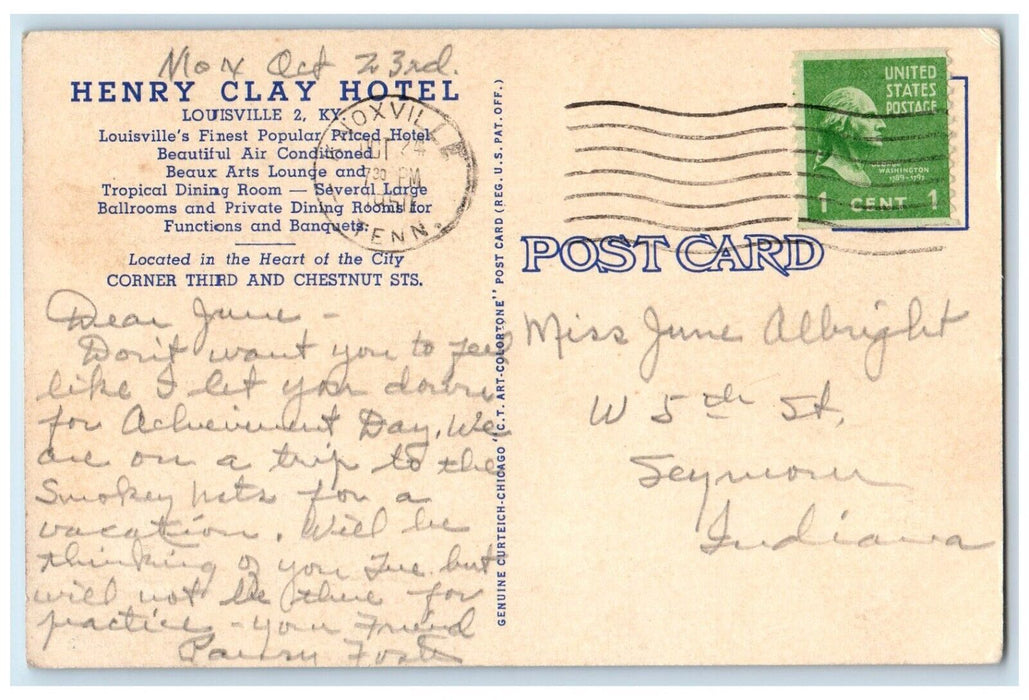 Mon Oct 23rd.
HENRY CLAY HOTEL
LOUISVILLE 2, KY.
Louisville's Finest Popular Priced Hotel
Beautiful Air Conditioned
Beaux Arts Lounge and
Tropical Dining Room — Several Large
Ballrooms and Private Dining Rooms for
Functions and Banquets.
Located in the Heart of the City
CORNER THIRD AND CHESTNUT STS.
KNOXVILLE
OCT 24
7 30 PM
TENN.
Dear June –
Don't want you to feel
like I let you down
for Achievement Day. We
are on a trip to the
Smokey Mts for a
vacation. Will be
thinking of you Tue. but
will not be there for
practice – your Friend
GENUINE CURTEICH-CHICAGO "C.T. ART-COLORTONE" POST CARD (REG. U.S. PAT. OFF.)
UNITED
STATES
POSTAGE
GEORGE
WASHINGTON
1789-1797
1 CENT 1
POST CARD
Miss June Albright
W 5th St.
Seymour
Indiana